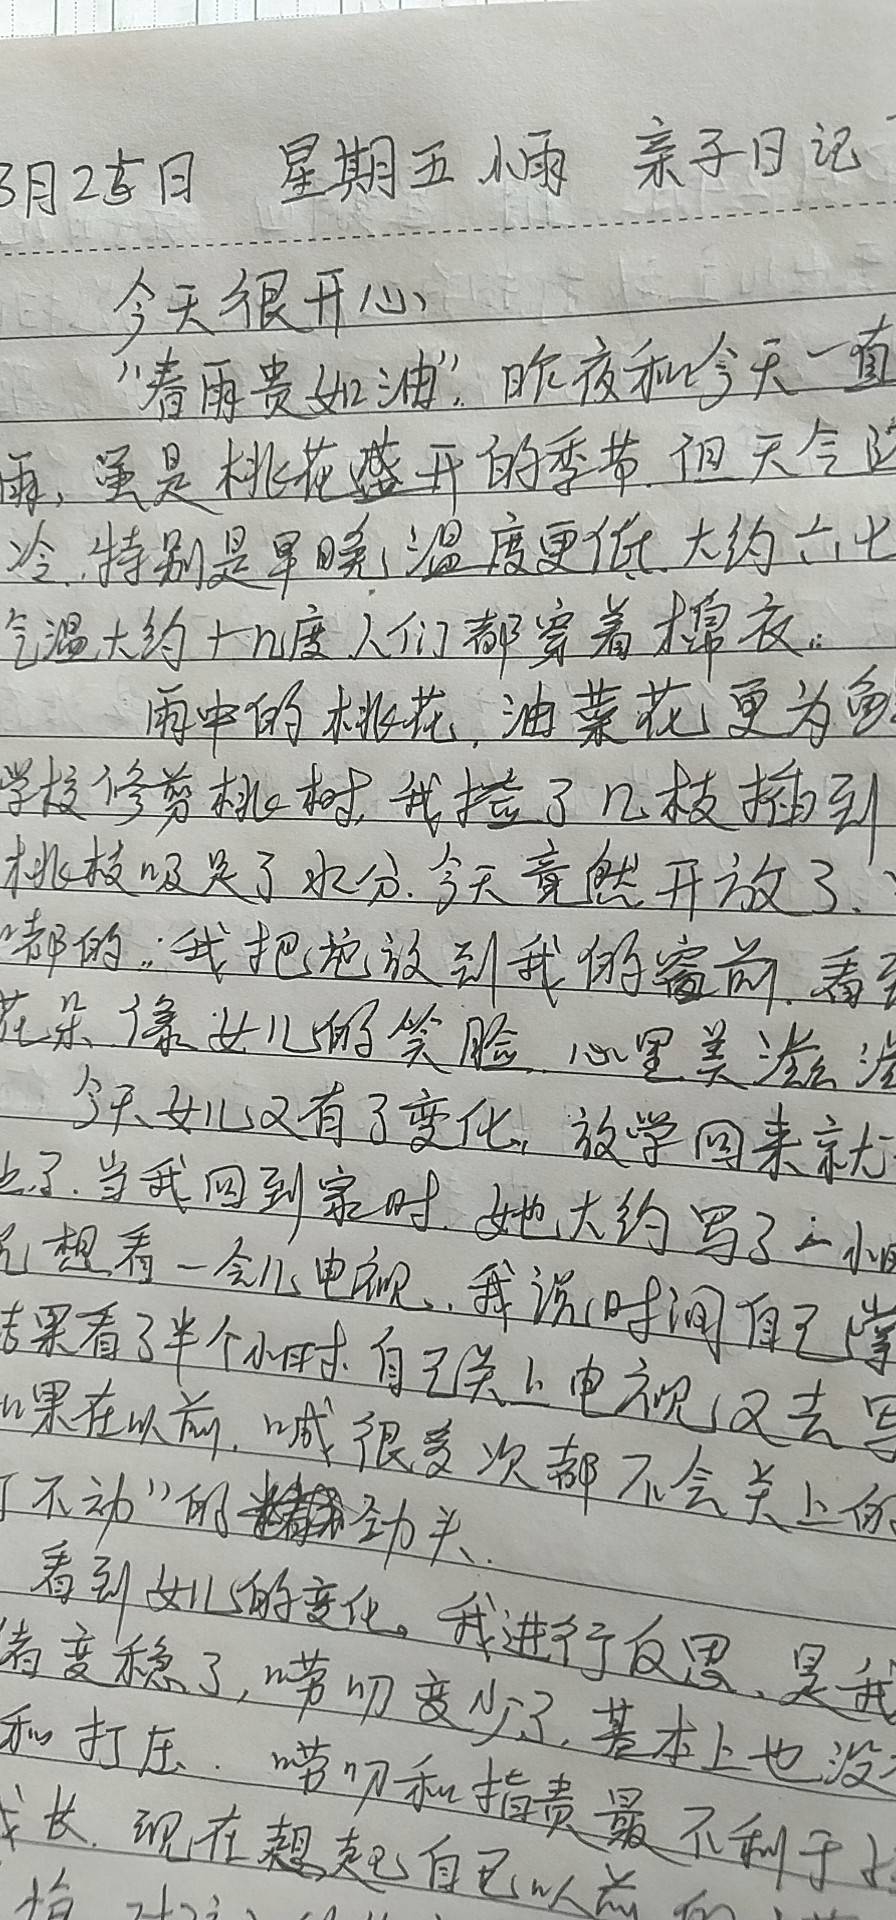 3月25日 星期五 小雨 亲子日记
今天很开心
“春雨贵如油”. 昨夜和今天一直
雨, 虽是桃花盛开的季节. 但天气
冷. 特别是早晚温度更低. 大约六七
气温大约十几度人们都穿着棉衣.
雨中的桃花, 油菜花更为
学校修剪桃树, 我捡了几枝插到
桃枝吸足了水分. 今天竟然开放了.
嘟的. 我把它放到我的窗前. 看到
花朵像女儿的笑脸. 心里美滋滋
今天女儿又有了变化, 放学回来就
了. 当我回到家时. 她大约写了一小时
想看一会儿电视. 我说时间自己掌
结果看了半个小时. 自己关上电视又去写
如果在以前. 喊很多次都不会关上的
打不动”的劲头.
看到女儿的变化. 我进行反思、是我
绪变稳了, 唠叨变少了, 基本上也没
和打压. 唠叨和指责最不利于
成长. 现在想起自己以前